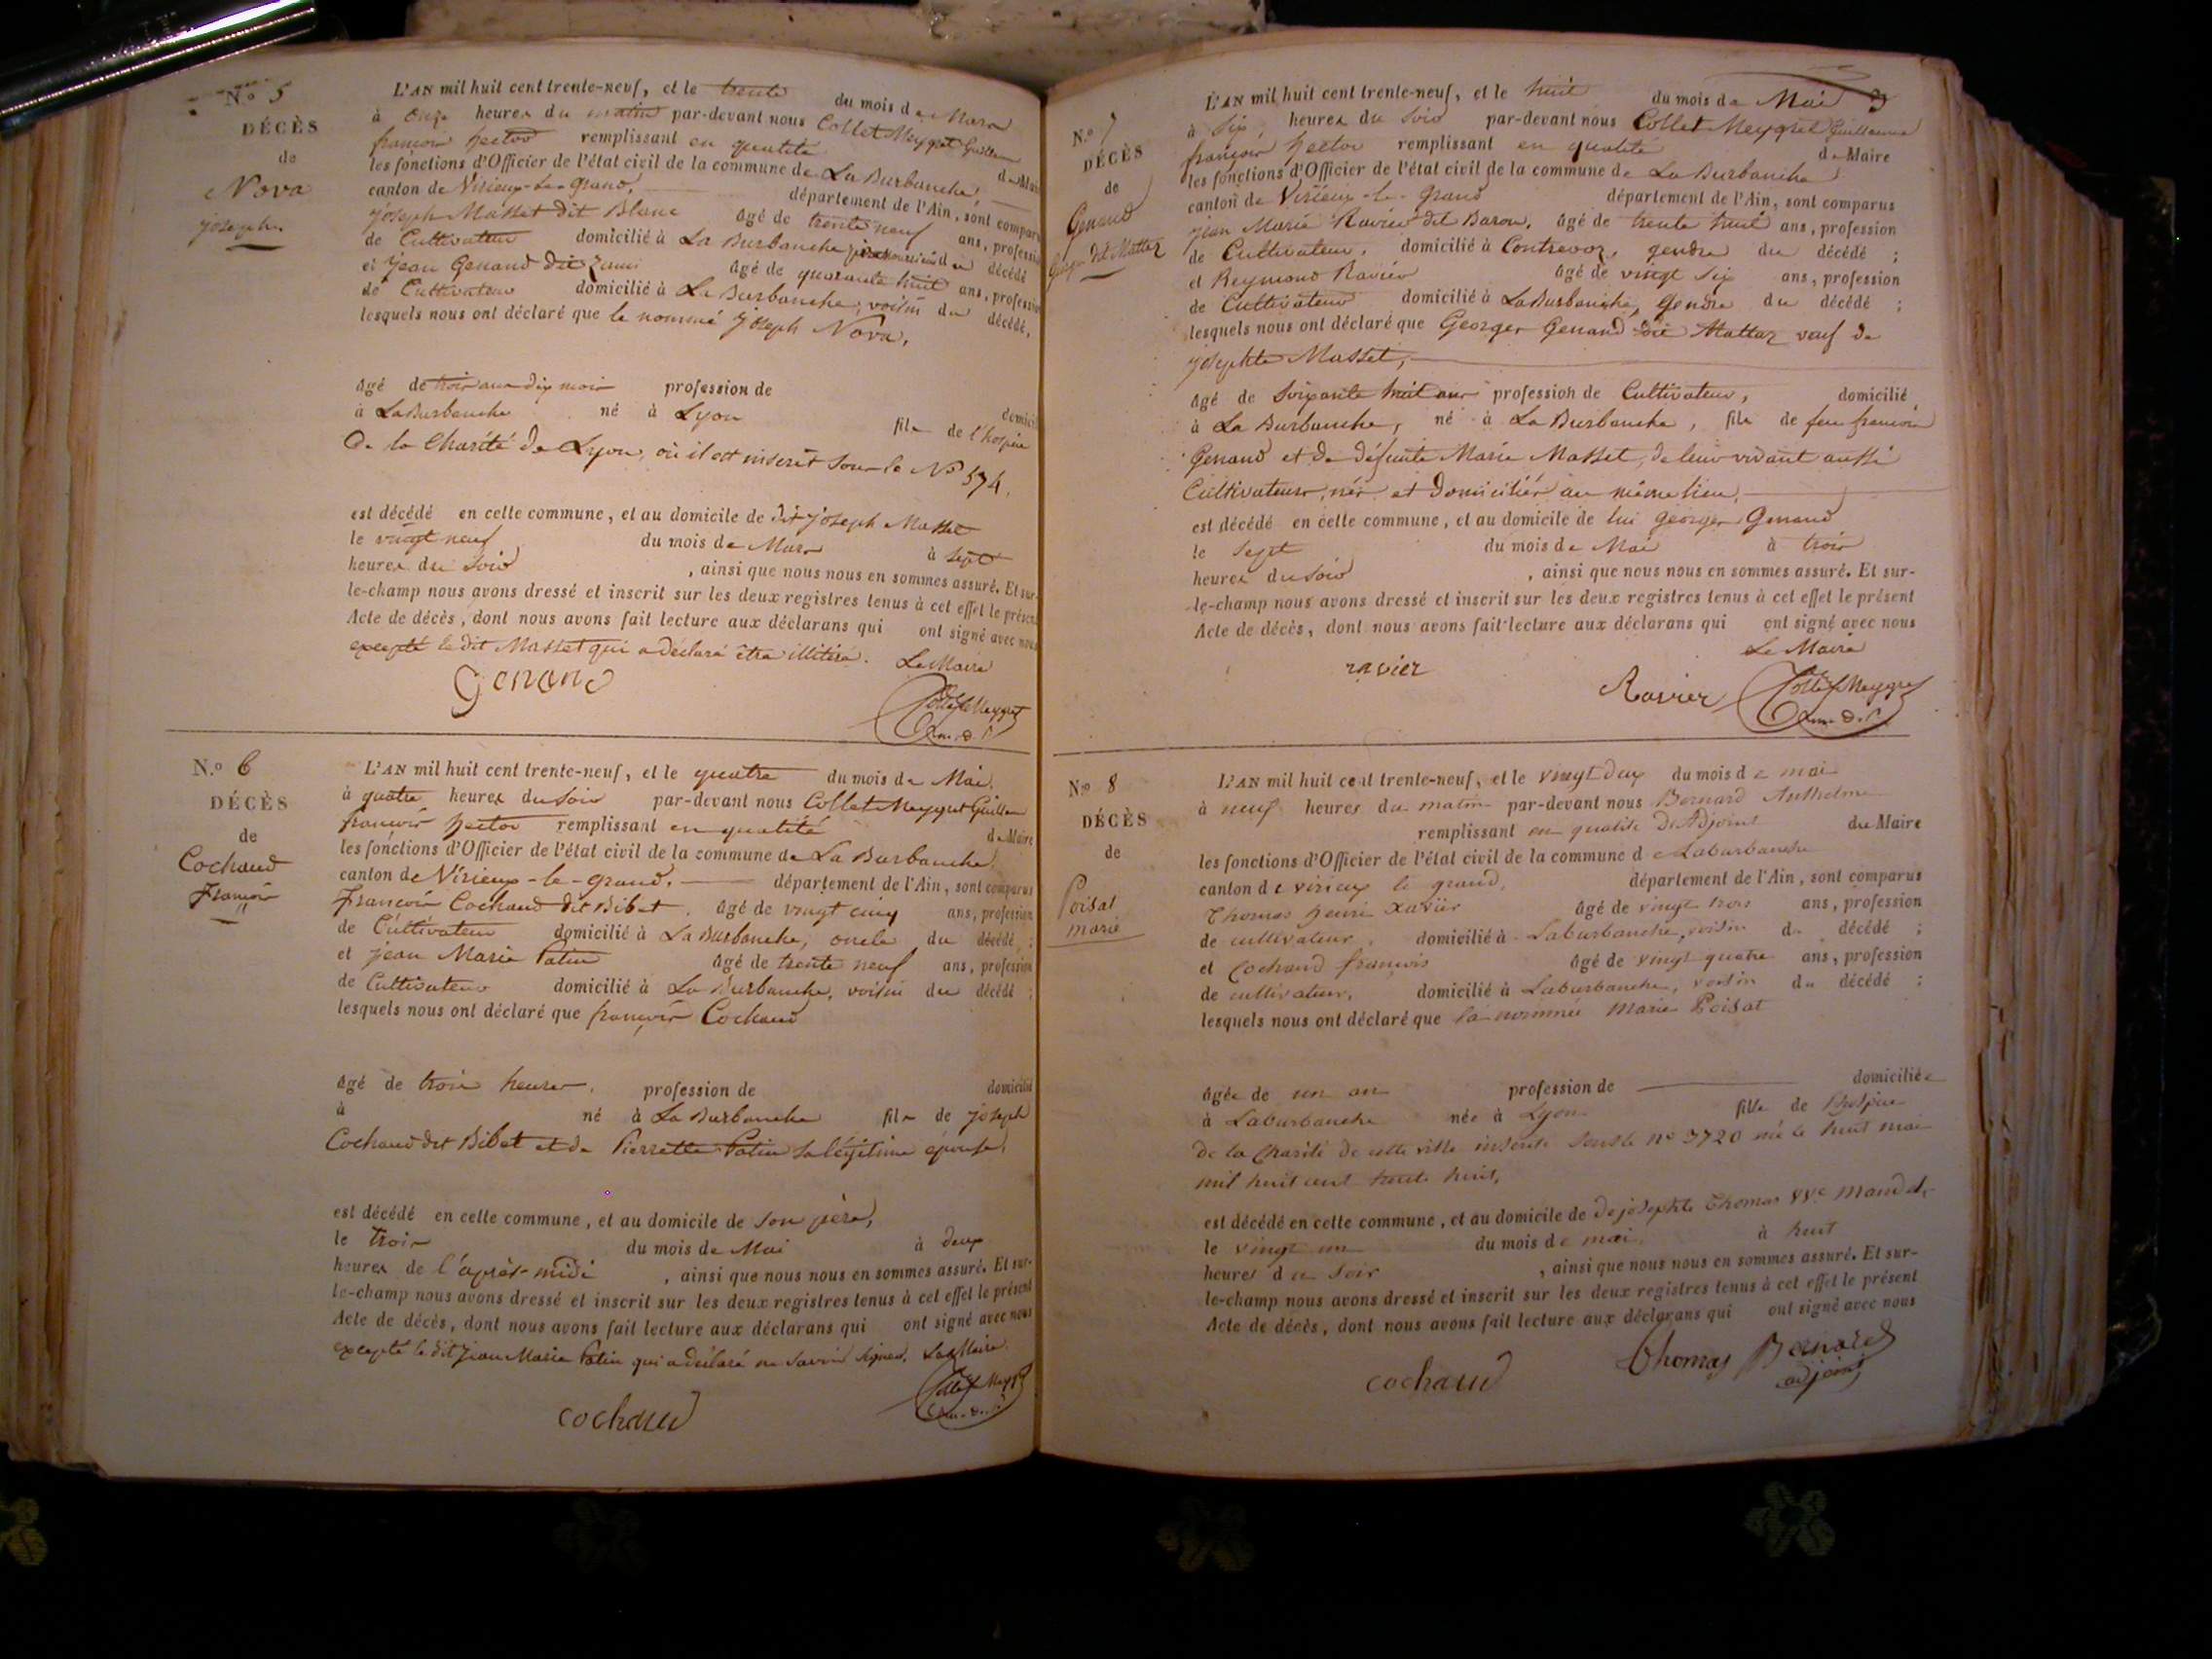 N.o 5
DÉCÈS
de
Nova
joseph.
L'AN mil huit cent trente-neuf, et le trente du mois de Mars
à onze heures du matin par-devant nous Collet Meygret Guillaume
françois hector remplissant en qualité de Maire
les fonctions d'Officier de l'état civil de la commune de La Burbanche,
canton de Virieux-le-grand, département de l'Ain, sont comparus
joseph Masset dit Blanc âgé de trente neuf ans, profession
de Cultivateur domicilié à La Burbanche père nourricier du décédé
et jean Genand dit âgé de quarante huit ans, profession
de Cultivateur domicilié à La Burbanche, voisin du décédé,
lesquels nous ont déclaré que le nommé joseph Nova,
âgé de trois ans dix mois profession de
à La Burbanche né à Lyon domicilié
fils de l'hospice
De la Charité de Lyon, où il est inscrit sous le No 574.
est décédé en cette commune, et au domicile de dit joseph Masset
le vingt neuf du mois de Mars à sept
heures du soir, ainsi que nous nous en sommes assuré. Et sur-
le-champ nous avons dressé et inscrit sur les deux registres tenus à cet effet le présent
Acte de décès, dont nous avons fait lecture aux déclarans qui ont signé avec nous
excepté le dit Masset qui a déclaré être illitéré. Le Maire
Genand
Collet Meygret
N.o 6
DÉCÈS
de
Cochaud
François
L'AN mil huit cent trente-neuf, et le quatre du mois de Mai,
à quatre heures du soir par-devant nous Collet Meygret Guillaume
françois hector remplissant en qualité de Maire
les fonctions d'Officier de l'état civil de la commune de La Burbanche,
canton de Virieux-le-grand, département de l'Ain, sont comparus
François Cochaud dit Bibet, âgé de vingt cinq ans, profession
de Cultivateur domicilié à La Burbanche, oncle du décédé ;
et jean Marie Patin âgé de trente neuf ans, profession
de Cultivateur domicilié à La Burbanche, voisin du décédé ;
lesquels nous ont déclaré que françois Cochaud
âgé de trois heures, profession de domicilié
à né à La Burbanche fils de joseph
Cochaud dit Bibet et de Pierrette Patin sa légitime épouse,
est décédé en cette commune, et au domicile de son père,
le trois du mois de Mai à deux
heures de l'après-midi, ainsi que nous nous en sommes assuré. Et sur-
le-champ nous avons dressé et inscrit sur les deux registres tenus à cet effet le présent
Acte de décès, dont nous avons fait lecture aux déclarans qui ont signé avec nous
excepté le dit jean Marie Patin qui a déclaré ne savoir signer. Le Maire
cochaud
Collet Meygret
N.o 7
DÉCÈS
de
Genand
Georges dit Mattaz
L'AN mil huit cent trente-neuf, et le huit du mois de Mai
à six, heures du soir par-devant nous Collet Meygret Guillaume
françois hector remplissant en qualité de Maire
les fonctions d'Officier de l'état civil de la commune de La Burbanche
canton de Virieux-le-grand département de l'Ain, sont comparus
jean Marie Ravier dit Baron, âgé de trente huit ans, profession
de Cultivateur, domicilié à Contrevoz, gendre du décédé ;
et Reymond Ravier âgé de vingt six ans, profession
de Cultivateur domicilié à La Burbanche, gendre du décédé ;
lesquels nous ont déclaré que Georges Genand dit Mattaz veuf de
josephte Masset,
âgé de soixante huit ans profession de Cultivateur, domicilié
à La Burbanche, né à La Burbanche, fils de feu françois
Genand et de défunte Marie Masset, de leur vivant aussi
Cultivateurs, nés et domiciliés au même lieu,
est décédé en cette commune, et au domicile de lui georges Genand
le sept du mois de Mai à trois
heures du soir, ainsi que nous nous en sommes assuré. Et sur-
le-champ nous avons dressé et inscrit sur les deux registres tenus à cet effet le présent
Acte de décès, dont nous avons fait lecture aux déclarans qui ont signé avec nous
Le Maire
ravier
Ravier Collet Meygret
N.o 8
DÉCÈS
de
Poisat
marie
L'AN mil huit cent trente-neuf, et le vingt deux du mois de mai
à neuf heures du matin par-devant nous Bernard Anthelme
remplissant en qualité d'Adjoint du Maire
les fonctions d'Officier de l'état civil de la commune de Laburbanche
canton de virieux le grand, département de l'Ain, sont comparus
Thomas henri xavier âgé de vingt trois ans, profession
de cultivateur, domicilié à Laburbanche, voisin du décédé ;
et Cochaud françois âgé de vingt quatre ans, profession
de cultivateur, domicilié à Laburbanche, voisin du décédé ;
lesquels nous ont déclaré que la nommée Marie Poisat
âgée de un an profession de domiciliée
à Laburbanche née à Lyon fille de l'hospice
de la Charité de cette ville inscrite sous le no 3720 née le huit mai
mil huit cent trente huit,
est décédé en cette commune, et au domicile de de josephte Thomas vve
le vingt un du mois de mai, à huit
heures du soir, ainsi que nous nous en sommes assuré. Et sur-
le-champ nous avons dressé et inscrit sur les deux registres tenus à cet effet le présent
Acte de décès, dont nous avons fait lecture aux déclarans qui ont signé avec nous
cochaud
thomas Bernard
adjoint